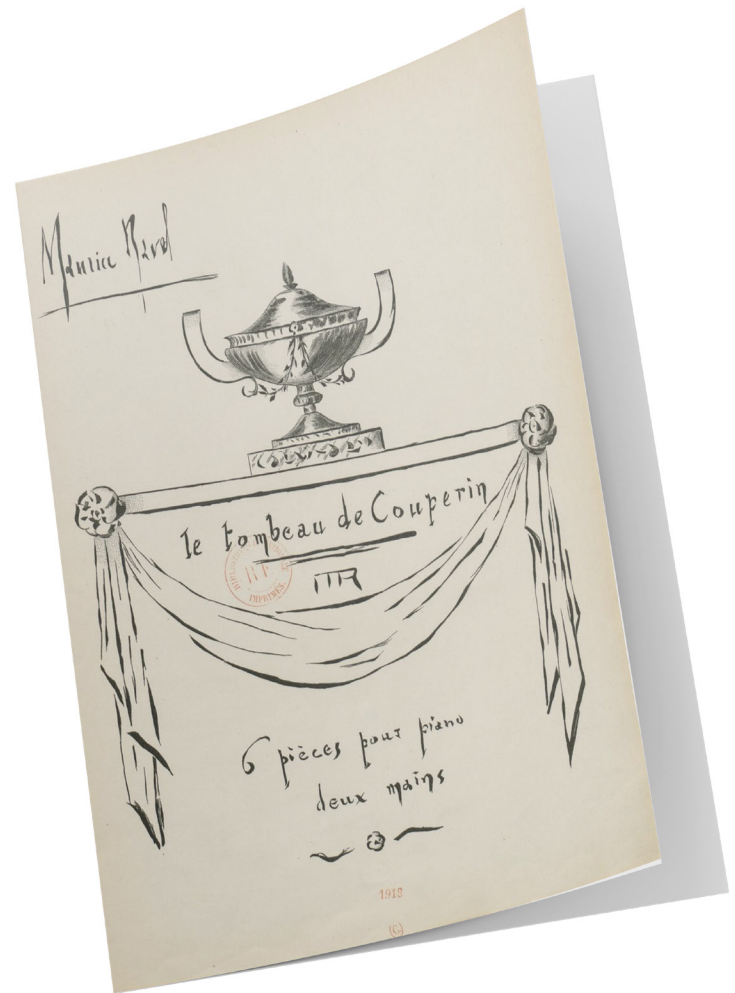 Maurice Ravel
le tombeau de Couperin
MR
IMPRIMÉS
6 pièces pour piano
deux mains
1918
(C)